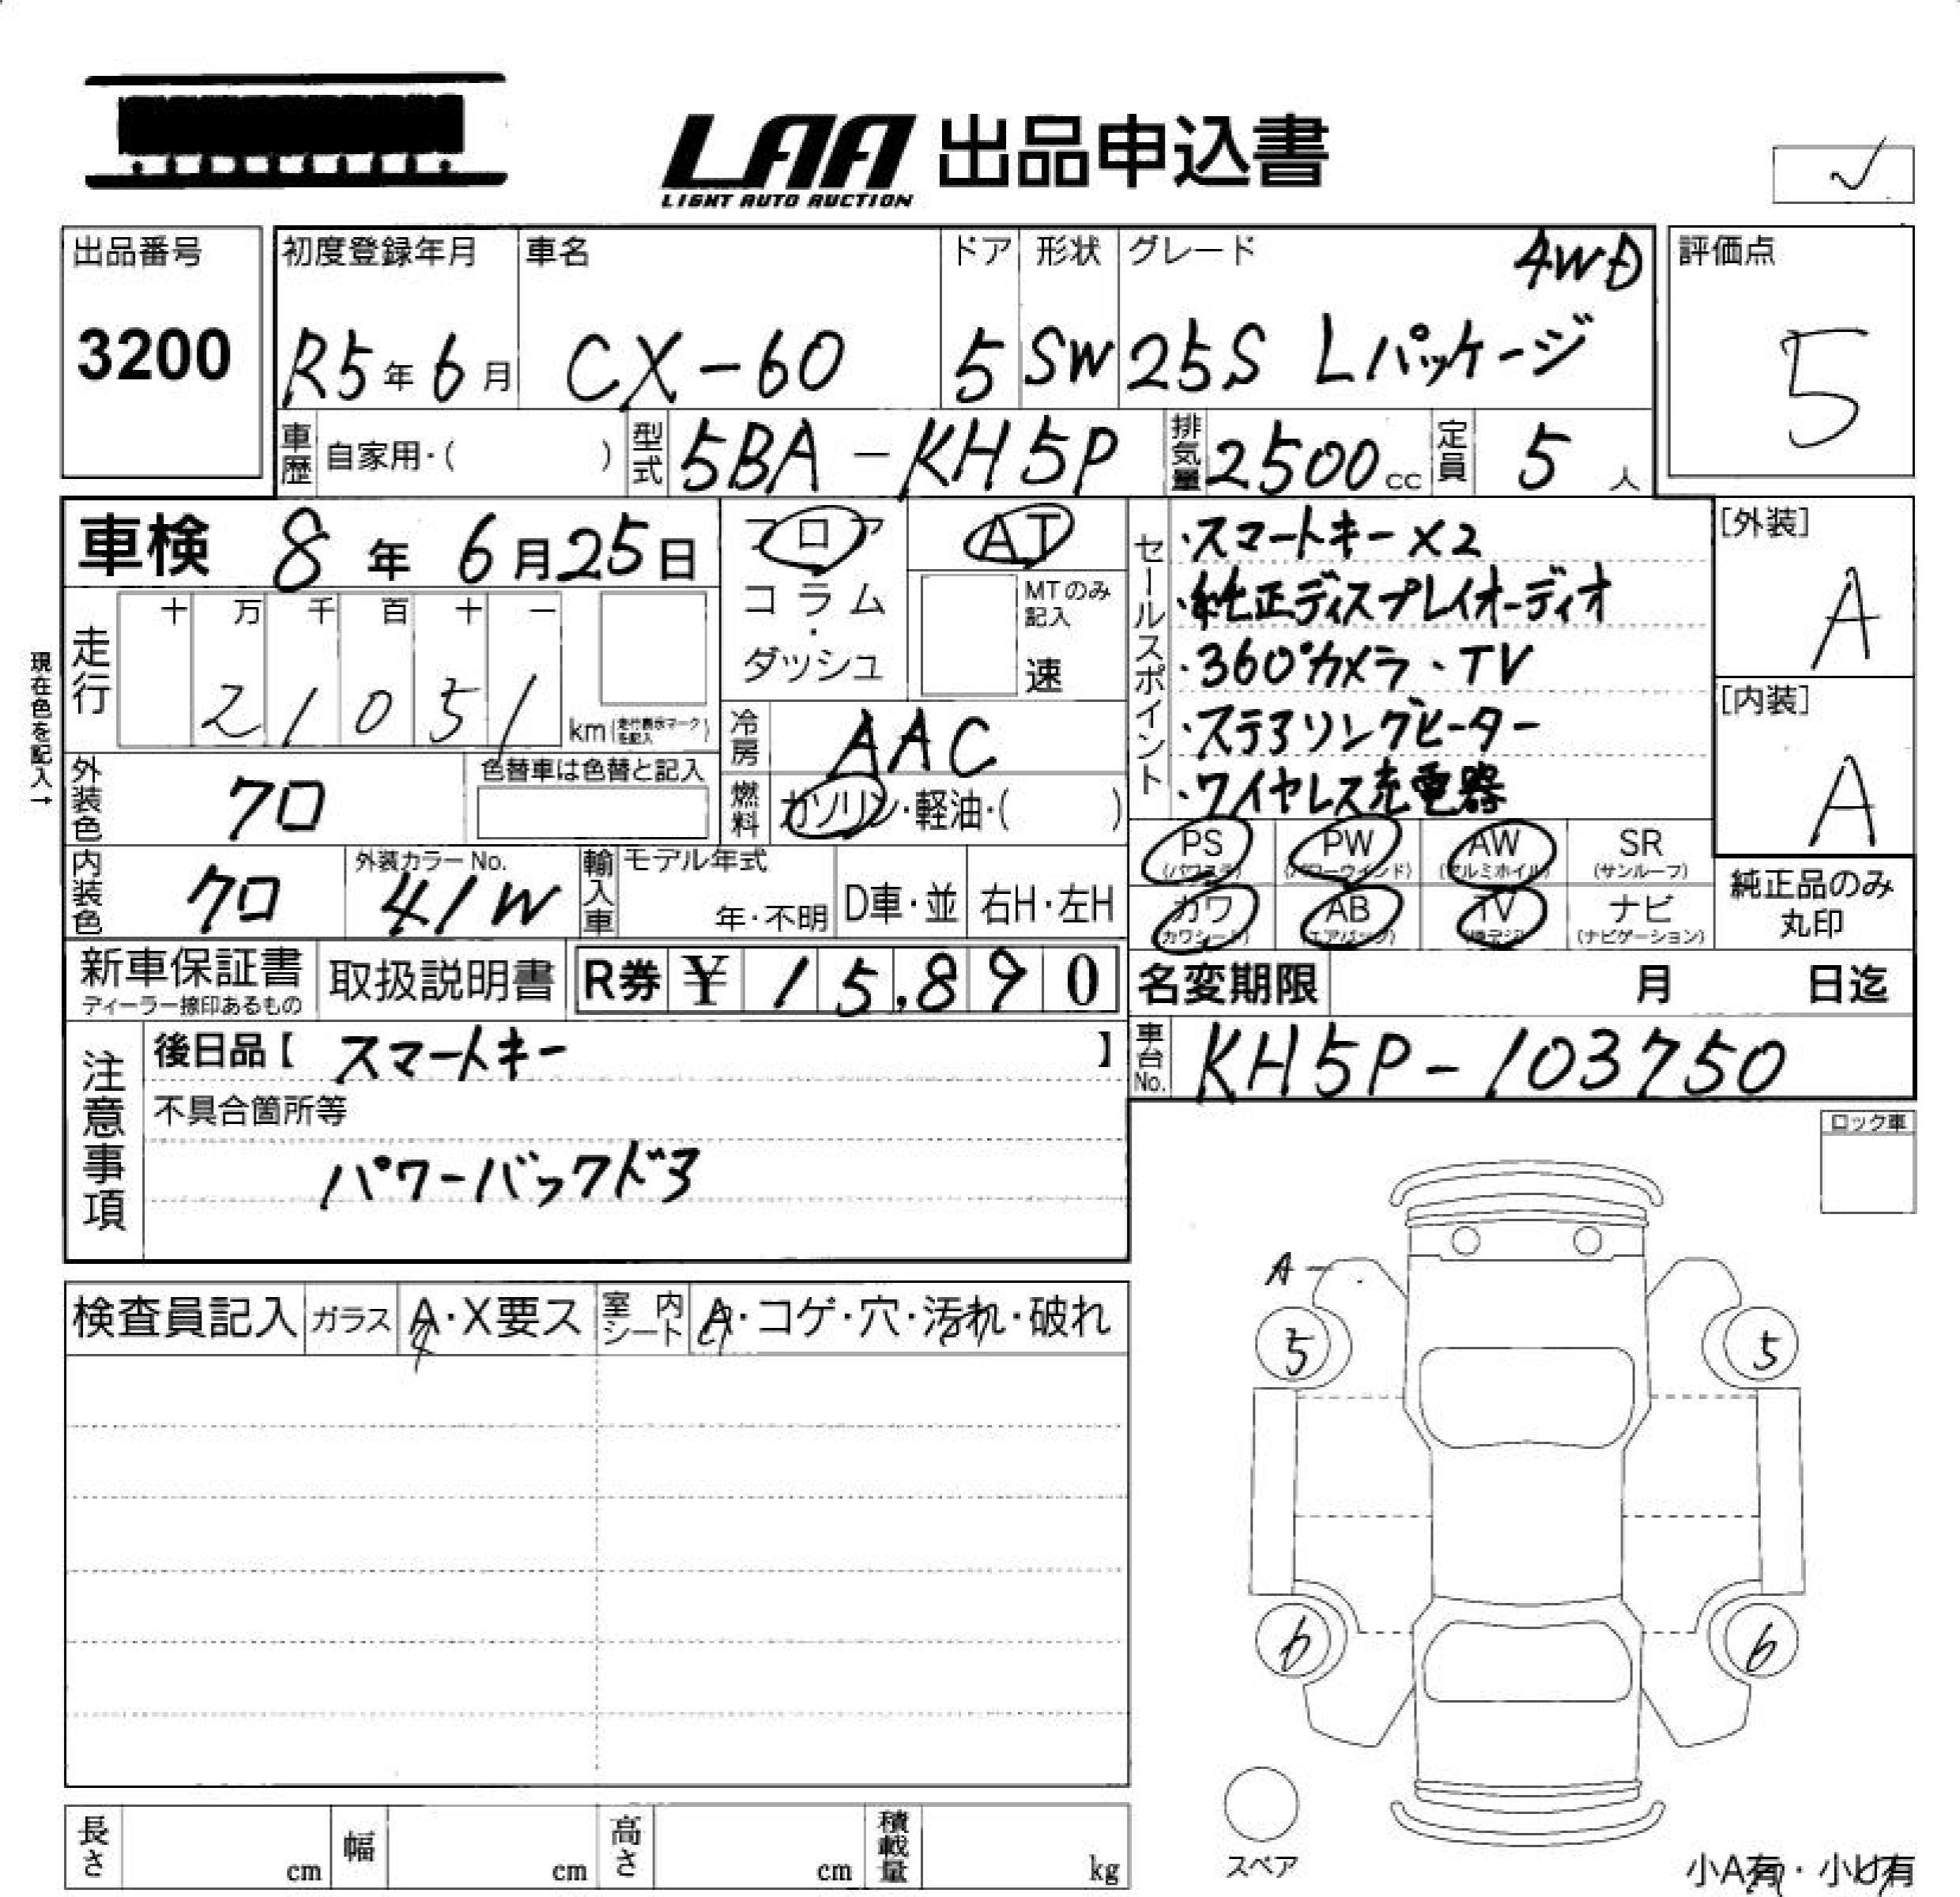 LAA 出品申込書
LIGHT AUTO AUCTION
出品番号
3200
初度登録年月
R5年6月
車名
CX-60
ドア
5
形状
SW
グレード 4WD
25S Lパッケージ
評価点
5
車歴 自家用・( )
型式 5BA-KH5P
排気量 2500cc
定員 5人
車検 8年6月25日
フロア
コラム
・
ダッシュ
AT
MTのみ
記入
速
セールスポイント
・スマートキー×2
・純正ディスプレイオーディオ
・360°カメラ・TV
・ステアリングヒーター
・ワイヤレス充電器
[外装]
A
[内装]
A
現在色を記入→
走行
十 万 千 百 十 一
2 1 0 5 1
km(走行表示マークを記入)
冷房 AAC
燃料 ガソリン・軽油・( )
外装色 クロ
色替車は色替と記入
内装色 クロ
外装カラーNo.
41W
輸入車
モデル年式
年・不明
D車・並
右H・左H
PS
(パワステ)
PW
(パワーウィンド)
AW
(アルミホイル)
SR
(サンルーフ)
カワ
(カワシート)
AB
(エアバッグ)
TV
(地デジ)
ナビ
(ナビゲーション)
純正品のみ
丸印
新車保証書
ディーラー捺印あるもの
取扱説明書
R券 ¥ 15,890
名変期限 月 日迄
車台No. KH5P-103750
注意事項
後日品【 スマートキー 】
不具合箇所等
パワーバックドア
ロック車
検査員記入
ガラス A・X要ス
室内シート A・コゲ・穴・汚れ・破れ
A
5 5
6 6
スペア
長さ cm
幅 cm
高さ cm
積載量 kg
小A有・小U有